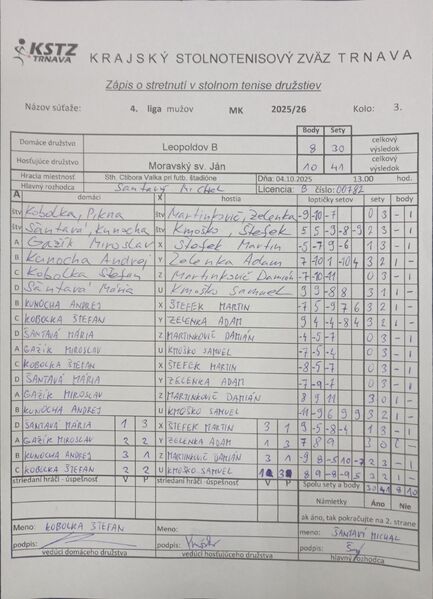 KSTZ
TRNAVA
KRAJSKÝ STOLNOTENISOVÝ ZVÄZ TRNAVA
Zápis o stretnutí v stolnom tenise družstiev
Názov súťaže: 4. liga mužov MK 2025/26 Kolo: 3.
Body Sety
Domáce družstvo Leopoldov B 8 30 celkový výsledok
Hosťujúce družstvo Moravský sv. Ján 10 41 celkový výsledok
Hracia miestnosť Sth. Ctibora Valka pri futb. štadióne Dňa: 04.10.2025 13.00 hod.
Hlavný rozhodca Santavý Michal Licencia: B číslo: 00782
A domáci X hostia loptičky setov sety body
štv Kobolka, Pikna štv Martinkovič, Zelenka -9 -10 -7 0 3 - 1
štv Šantavá, Kunocha štv Kmoško, Štefek 5 5 -9 -8 -9 2 3 - 1
A Gažík Miroslav X Štefek Martin -5 -7 9 -6 1 3 - 1
B Kunocha Andrej Y Zelenka Adam 7 -10 1 -10 4 3 2 1 -
C Kobolka Štefan Z Martinkovič Damián -7 -10 -11 0 3 - 1
D Šantavá Mária U Kmoško Samuel 9 9 -8 8 3 1 1 -
B KUNOCHA ANDREJ X ŠTEFEK MARTIN -7 5 -9 7 6 3 2 1 -
C KOBOLKA ŠTEFAN Y ZELENKA ADAM 9 4 -4 -8 4 3 2 1 -
D ŠANTAVÁ MÁRIA Z MARTINKOVIČ DAMIÁN -4 -5 -7 0 3 - 1
A GAŽÍK MIROSLAV U KMOŠKO SAMUEL -7 -5 -4 0 3 - 1
C KOBOLKA ŠTEFAN X ŠTEFEK MARTIN -8 -5 -7 0 3 - 1
D ŠANTAVÁ MÁRIA Y ZELENKA ADAM -7 -9 -7 0 3 - 1
A GAŽÍK MIROSLAV Z MARTINKOVIČ DAMIÁN 8 9 11 3 0 1 -
B KUNOCHA ANDREJ U KMOŠKO SAMUEL -11 -9 6 9 9 3 2 1 -
D SANTAVA MÁRIA 1 3 X ŠTEFEK MARTIN 3 1 9 -5 -8 -4 1 3 - 1
A GAŽÍK MIROSLAV 2 2 Y ZELENKA ADAM 1 3 7 8 9 3 0 1 -
B KUNOCHA ANDREJ 3 1 Z MARTINKOVIČ DAMIÁN 3 1 -9 8 -5 10 -7 2 3 - 1
C KOBOLKA ŠTEFAN 2 2 U KMOŠKO SAMUEL 8 9 -8 -9 5 3 2 1 -
striedaní hráči - úspešnosť: V P striedaní hráči - úspešnosť: V P Spolu sety a body 30 41 8 10
Námietky Áno Nie
ak áno, tak pokračujte na 2. strane
Meno: KOBOLKA ŠTEFAN Meno: meno: ŠANTAVÝ MICHAL
podpis: podpis: podpis:
vedúci domáceho družstva vedúci hosťujúceho družstva hlavný rozhodca